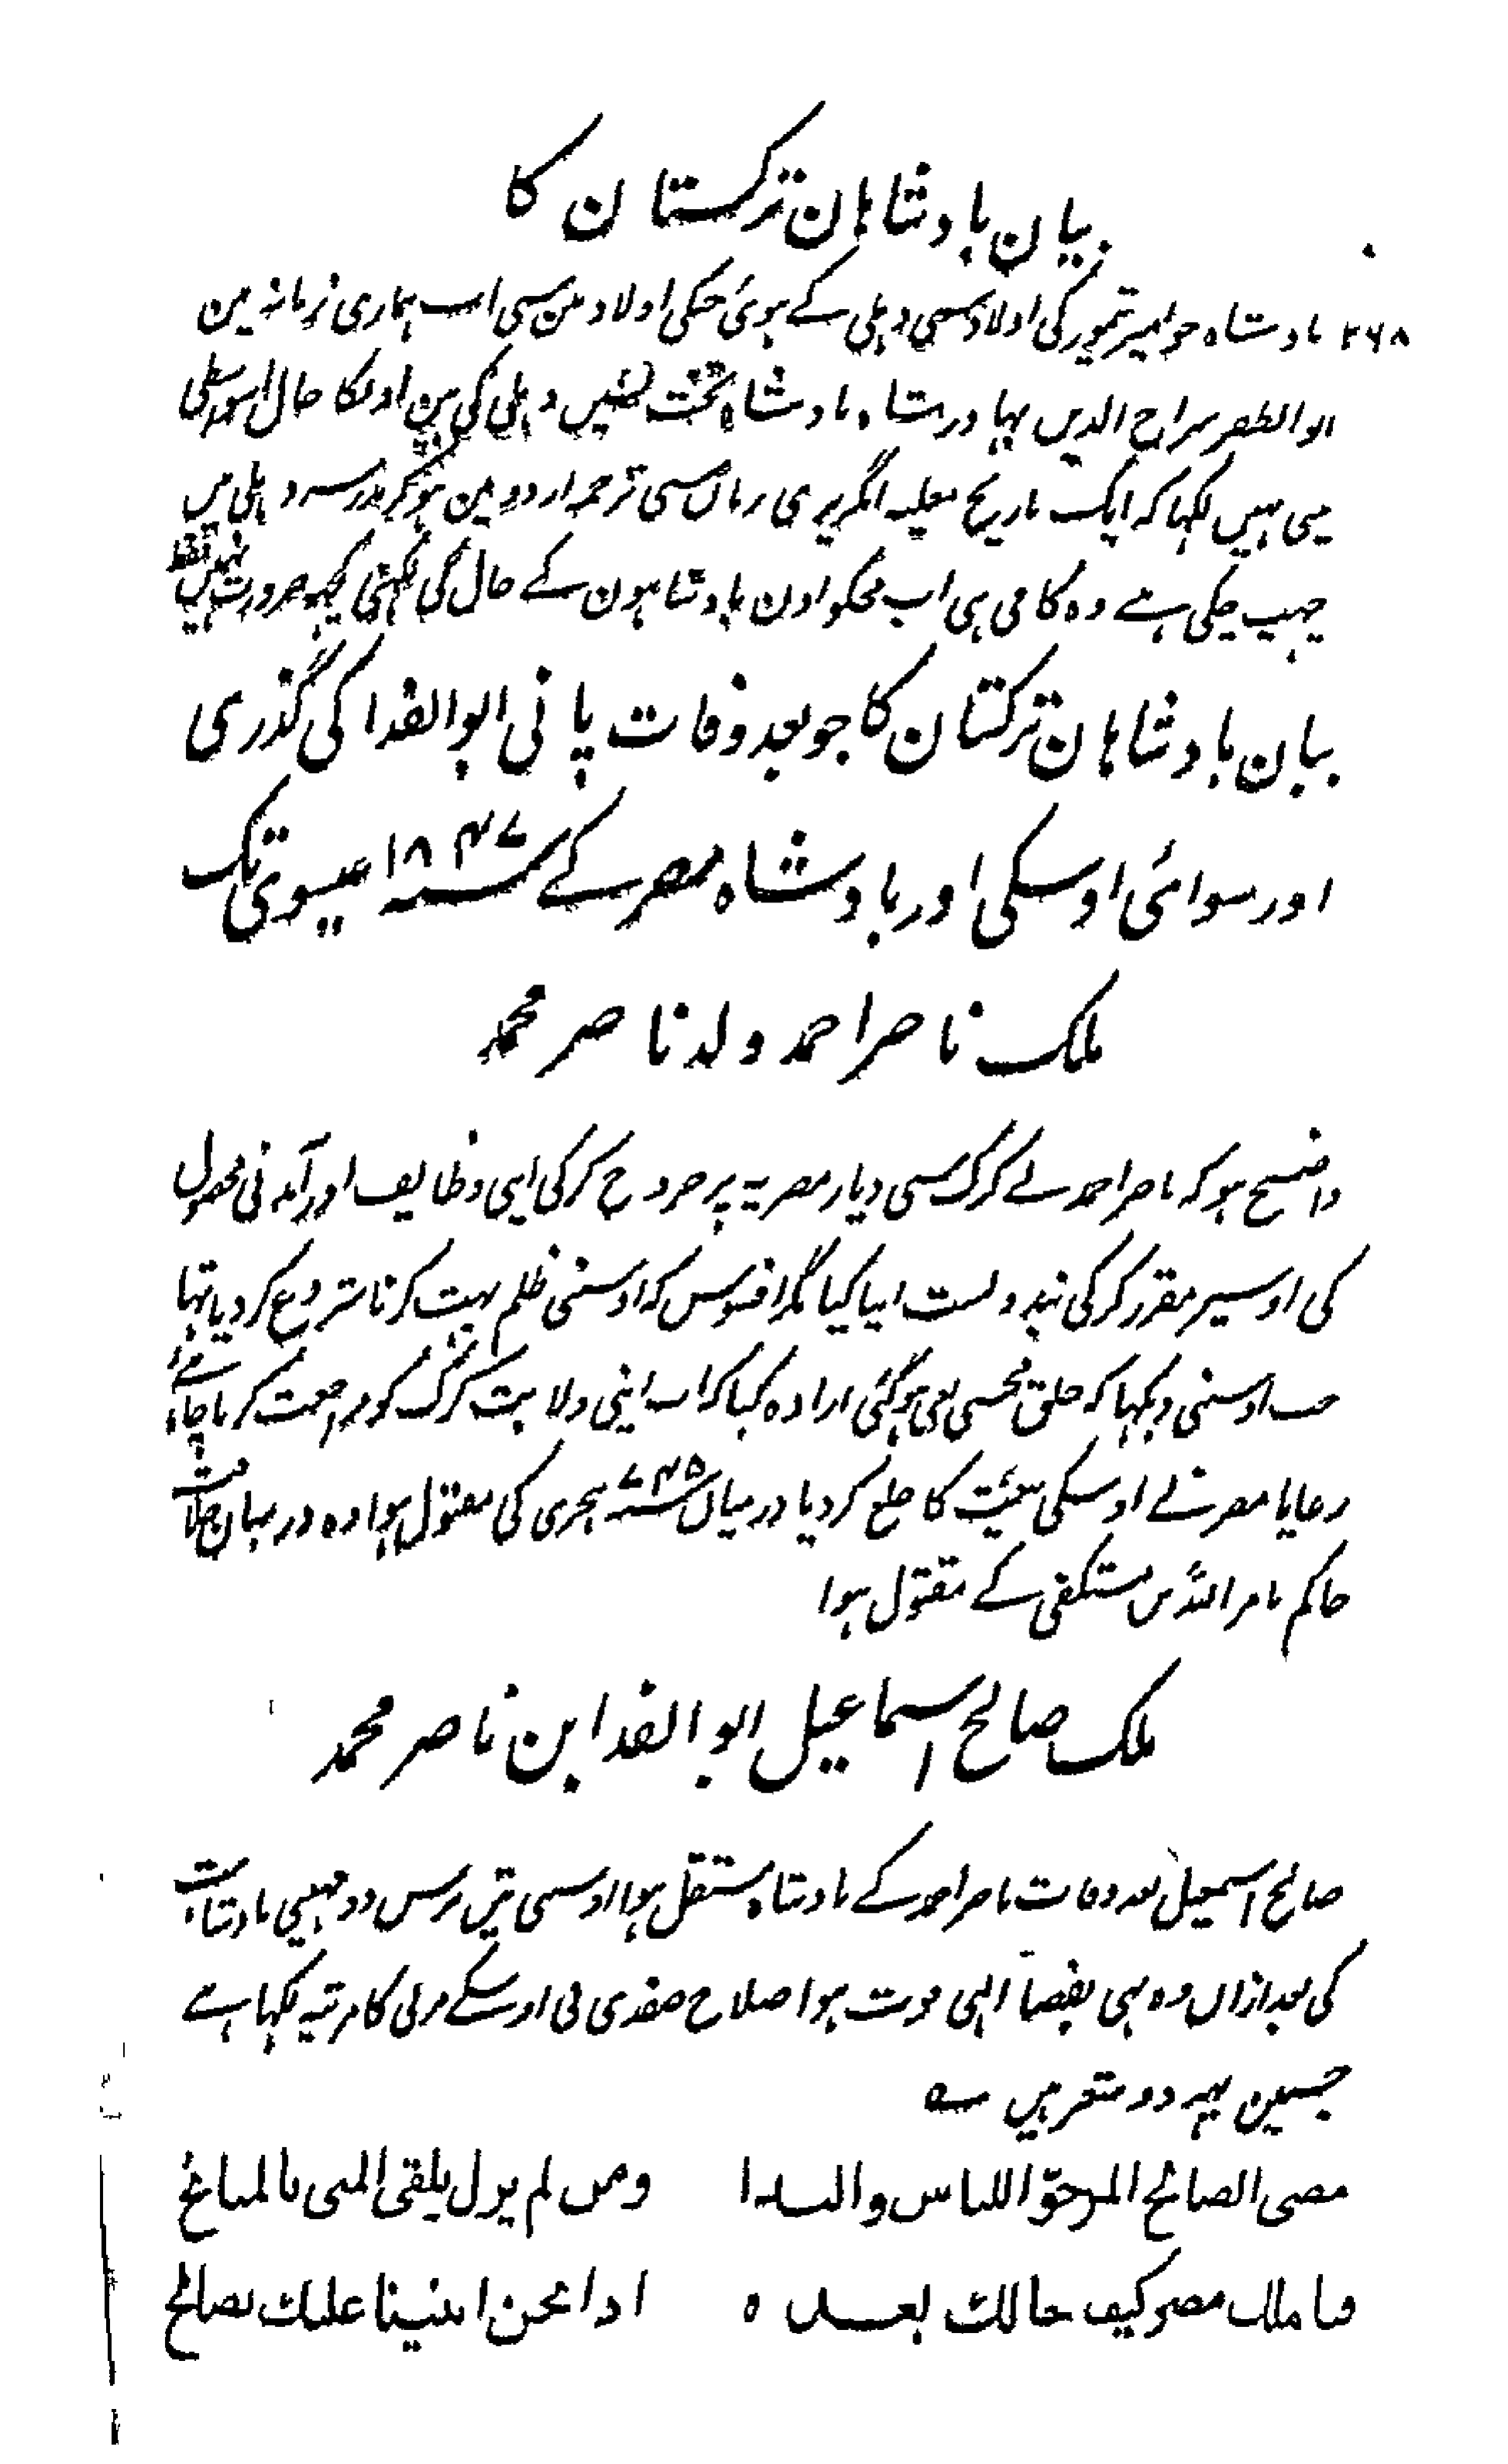 بیان بادشاہان ترکستان کا
۲۶۸ بادشاہ جو امیر تیمور کی اولاد سی دہلی کے ہوئی جنکی اولاد مین سی اب ہماری زمانہ مین
ابو الظفر سراج الدین بہادر شاہ بادشاہ تخت نشین دہلی کی ہین اونکا حال اسواسطی
مین نہین لکہا کہ ایک تاریخ مغلیہ انگریزی زبان سی ترجمہ اردو مین ہوکر مدرسہ دہلی مین
چہپ چکی ہے وہ کافی ہی اب مجکو اون بادشاہون کے حال کی لکہنی کچہہ ضرورت نہین فقط
بیان بادشاہان ترکستان کا جو بعد وفات پانی ابو الفدا کی گذری
اور سوائی اوسکی اور بادشاہ مصر کے سنہ ۱۸۴۷ عیسوی تک
ملک ناصر احمد ولد ناصر محمد
واضح ہو کہ ناصر احمد نے کرک سی دیار مصریہ پر خروج کرکی اپنی وظایف اور آمدنی محصول
کی اوسپر مقرر کرکی بند و بست اپنا کیا مگر افسوس کہ اوسنی ظلم بہت کرنا شروع کر دیا تہا
جب اوسنی دیکہا کہ خلق مجسی ہوگئی ارادہ کیا کہ اب اپنی ولایت کرک کو مراجعت کرنا چاہئے
رعایا مصر نے اوسکی بیعت کا خلع کر دیا درمیان سنہ ۷۴۵ ہجری کی مقتول ہوا وہ درمیان خلافت
حاکم بامر اللہ بن مستکفی کے مقتول ہوا
ملک صالح اسماعیل ابو الفدا بن ناصر محمد
صالح اسمعیل بعد وفات ناصر احمد کے بادشاہ مستقل ہوا اوسی تین برس دو مہینی بادشاہت
کی بعد ازاں وہ بہی بقضاٴ الہی فوت ہوا صلاح صفدی نی اوسکے مرنی کا مرثیہ لکہا ہے
جسمین یہہ دو شعر ہین ؎
مضی الصالح المرجوّ للباس والندا ومن لم یزل یلقی المنی بالمنائح
فیا ملک مصر کیف حالک بعدہ اذا نحن اثنینا علیک بصالح